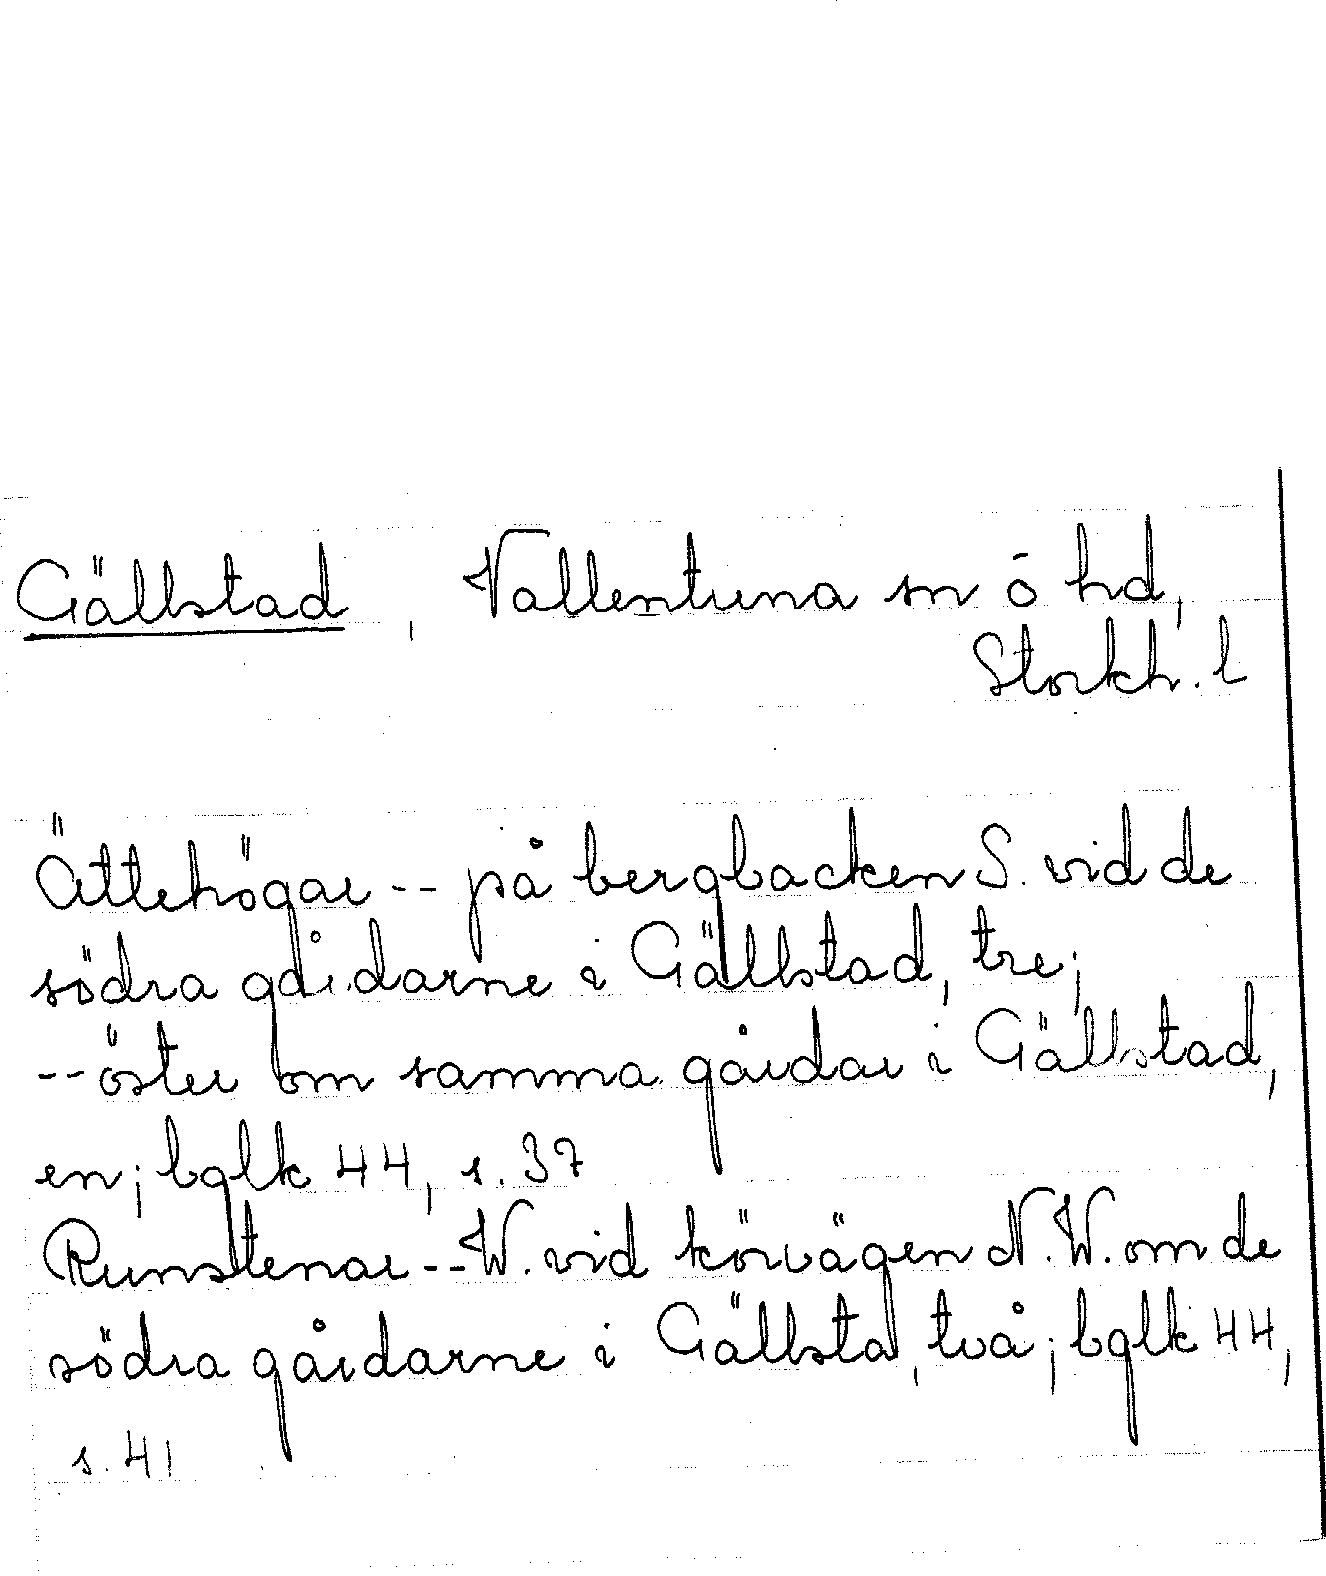 Gällstad, Vallentuna sn o hd,
Stockh. l
Ättehögar -- på bergbacken S. vid de
södra gårdarne i Gällstad, tre;
-- öster om samma gårdar i Gällstad,
en; bglk 44, s. 37
Runstenar -- W. vid körvägen N.W. om de
södra gårdarne i Gällsta, två; bglk 44,
s. 41